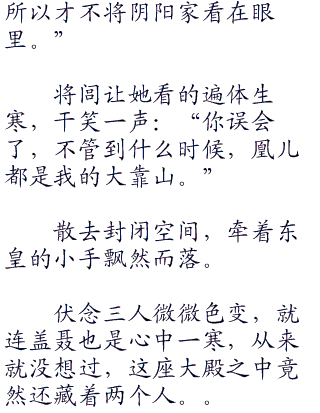 所以才不将阴阳家看在眼
里。”
将闾让她看的遍体生
寒，干笑一声：“你误会
了，不管到什么时候，凰儿
都是我的大靠山。”
散去封闭空间，牵着东
皇的小手飘然而落。
伏念三人微微色变，就
连盖聂也是心中一寒，从来
就没想过，这座大殿之中竟
然还藏着两个人。。